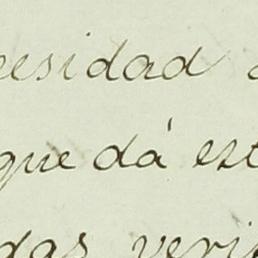 cesidad
que dá est
das veri